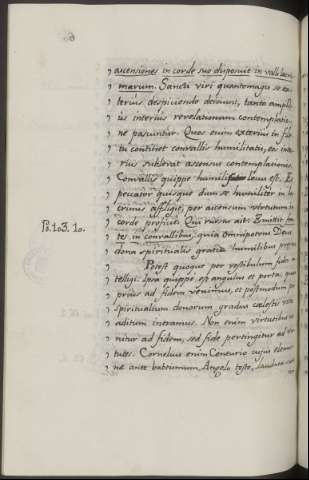 ascensiones in corde suo disposuit in valle lacri-
marum. Sancti viri quantomagis se ex-
terius despiciendo deiiciunt, tanto ampli-
us interius revelationum contemplatio-
ne pascuntur. Quos enim exterius in fle-
tu continet convallis humilitatis, eos inte-
rius sublevat ascensus contemplationis.
Convallis quippe humilis locus est. Et
peccator quisque dum se humiliter in la-
crimis affligit, per ascensum virtutum in
corde proficit. Qui rursus ait: Emittit fon-
Ps. 103. 10.
tes in convallibus, quia omnipotens Deus
dona spiritualis gratiæ humilibus
Potest quoque per vestibulum fides in-
telligi. Ipsa quippe est ianua et porta; quia
prius ad fidem venimus, et postmodum per
spiritualium donorum gradus cœlestis vitæ
aditum intramus. Non enim virtutibus ve-
nitur ad fidem, sed fide pertingitur ad vir-
tutes. Cornelius enim Centurio cujus eleemo-
ne ante baptismum, Angelo teste, laudatæ